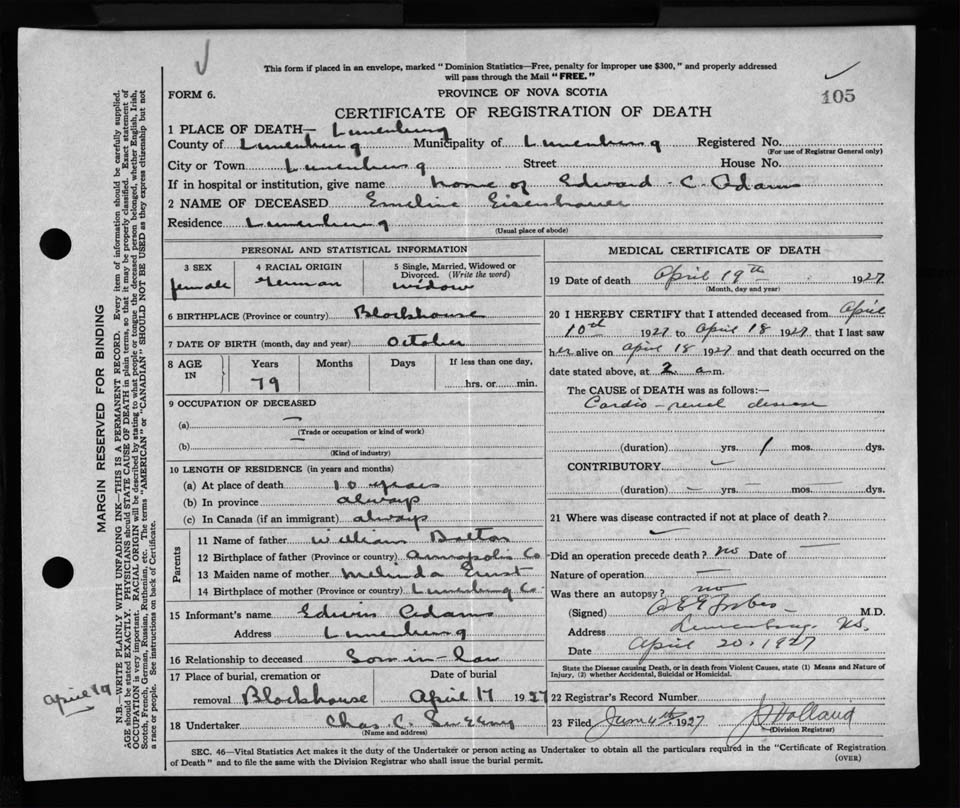 This form if placed in an envelope, marked "Dominion Statistics—Free, penalty for improper use $300," and properly addressed
will pass through the Mail "FREE."
FORM 6.
PROVINCE OF NOVA SCOTIA
105
CERTIFICATE OF REGISTRATION OF DEATH
1 PLACE OF DEATH— Lunenburg
County of Lunenburg Municipality of Lunenburg Registered No.
(For use of Registrar General only)
City or Town Lunenburg Street House No.
If in hospital or institution, give name home of Edward C. Adams
2 NAME OF DECEASED Emeline Eisenhauer
Residence Lunenburg
(Usual place of abode)
PERSONAL AND STATISTICAL INFORMATION
3 SEX 4 RACIAL ORIGIN 5 Single, Married, Widowed or
Divorced. (Write the word)
female German widow
6 BIRTHPLACE (Province or country) Blockhouse
7 DATE OF BIRTH (month, day and year) October
8 AGE IN Years Months Days If less than one day,
79 hrs. or min.
9 OCCUPATION OF DECEASED
(a) —
(Trade or occupation or kind of work)
(b) —
(Kind of industry)
10 LENGTH OF RESIDENCE (in years and months)
(a) At place of death 10 years
(b) In province always
(c) In Canada (if an immigrant) always
Parents
11 Name of father William Bolton
12 Birthplace of father (Province or country) Annapolis Co
13 Maiden name of mother Melinda Ernst
14 Birthplace of mother (Province or country) Lunenburg Co
15 Informant's name Edwin Adams
Address Lunenburg
16 Relationship to deceased Son-in-law
17 Place of burial, cremation or Date of burial
removal Blockhouse April 17 1927
April 19
18 Undertaker Chas. C. Sweeny
(Name and address)
MEDICAL CERTIFICATE OF DEATH
19 Date of death April 19th 1927
(Month, day and year)
20 I HEREBY CERTIFY that I attended deceased from April
10th 1927 to April 18 1927 that I last saw
her alive on April 18 1927 and that death occurred on the
date stated above, at 2 a.m.
The CAUSE of DEATH was as follows:—
Cardio-renal disease
(duration) yrs. 1 mos. dys.
CONTRIBUTORY
(duration) — yrs. — mos. dys.
21 Where was disease contracted if not at place of death?
Did an operation precede death? no Date of —
Nature of operation —
Was there an autopsy? no
(Signed) Forbes M.D.
Address Lunenburg, N.S.
Date April 20, 1927
State the Disease causing Death, or in death from Violent Causes, state (1) Means and Nature of
Injury, (2) whether Accidental, Suicidal or Homicidal.
22 Registrar's Record Number
23 Filed June 4th 1927 Holland
(Division Registrar)
SEC. 46—Vital Statistics Act makes it the duty of the Undertaker or person acting as Undertaker to obtain all the particulars required in the "Certificate of Registration
of Death" and to file the same with the Division Registrar who shall issue the burial permit.
(OVER)
MARGIN RESERVED FOR BINDING
N.B.—WRITE PLAINLY WITH UNFADING INK—THIS IS A PERMANENT RECORD. Every item of information should be carefully supplied.
AGE should be stated EXACTLY. PHYSICIANS should STATE CAUSE OF DEATH in plain terms, so that it may be properly classified. Exact statement of
OCCUPATION is very important. RACIAL ORIGIN will be described by stating to what people or tongue the deceased person belonged, whether English, Irish,
Scotch, French, German, Russian, Ruthenian, etc. The terms "AMERICAN" or "CANADIAN" SHOULD NOT BE USED as they express citizenship but not
a race or people. See instructions on back of Certificate.